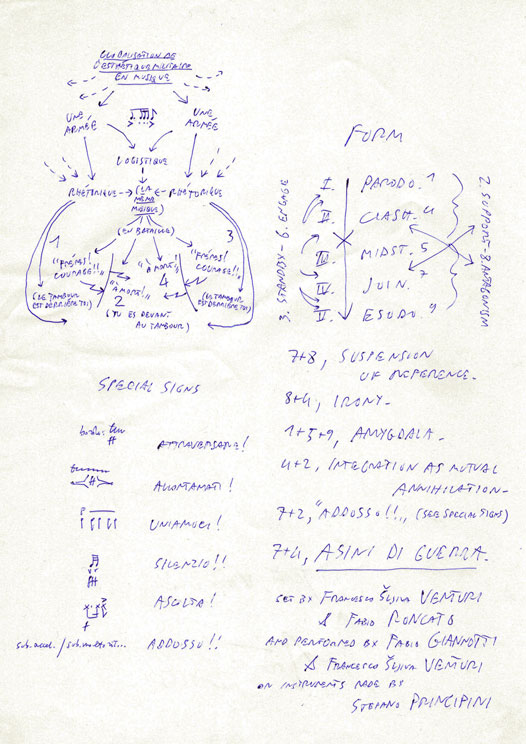 GLOBALISATION DE
L'ESTHÉTIQUE MILITAIRE
EN MUSIQUE
UNE
ARMÉE
UNE
ARMÉE
LOGISTIQUE
RHÉTORIQUE → (LA ← RHÉTORIQUE
MÊME
MUSIQUE)
(EN BATAILLE)
1
3
"FRÈRES!
COURAGE!!"
"À MORT!"
"À MORT!"
4
"FRÈRES!
COURAGE!!"
(LE TAMBOUR
EST DERRIÈRE TOI)
2
(LE TAMBOUR
EST DERRIÈRE TOI)
(TU ES DEVANT
AU TAMBOUR)
FORM
3. STANDBY - 6. ENGAGE
I. PARODO. 1
II. CLASH. 4
III. MIDST. 5
IV. JOIN. 7
V. ESODO. 9
2. SUPPORT - 8. ANTAGONISM
7+8, SUSPENSION
OF REFERENCE.
8+4, IRONY.
1+5+9, AMYGDALA.
4+2, INTEGRATION AS MUTUAL
ANNIHILATION.
7+2, "ADDOSSO!!", (SEE SPECIAL SIGNS)
7+4, ASINI DI GUERRA.
SPECIAL SIGNS
ATTRAVERSARE!
ALLONTANATI!
UNIAMOCI!
SILENZIO!!
ASCOLTA!
ADDOSSO!!
SET BY FRANCESCO ŠLJIVA VENTURI
& FABIO RONCATO
AND PERFORMED BY FABIO GIANNOTTI
& FRANCESCO ŠLJIVA VENTURI
ON INSTRUMENTS MADE BY
STEFANO PRINCIPINI